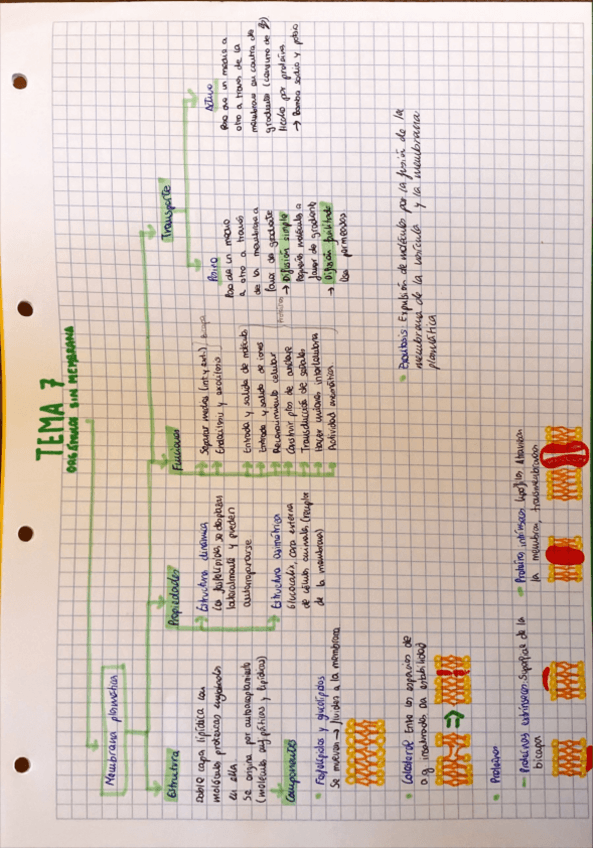 TEMA 7
ORGÁNULOS SIN MEMBRANA
Membrana plasmática
Estructura
Doble capa lipídica con
moléculas proteicas englobadas
en ella
Se origina por autoacoplamiento
(moléculas anfipáticas y lipídicas)
Componentes
Fosfolípidos y glucolípidos
Se mueven → fluidez a la membrana
Colesterol Entre los espacios de
a.g insaturados Da estabilidad
Proteínas
Proteínas extrínsecas Superficie de la
bicapa
Proteínas intrínsecas Atraviesan
la membrana, transmembranosas
Propiedades
Estructura dinámica
Los fosfolípidos se desplazan
lateralmente y pueden
autorrepararse
Estructura asimétrica
Glucocálix, cara externa
de células animales (receptor
de la membrana)
Funciones
Separar medios (int y ext.)
Endocitosis y exocitosis
Bicapa
Entrada y salida de moléculas
Entrada y salida de iones
Reconocimiento celular
Construir ptos de anclaje
Transducción de señales
Hacer uniones intercelulares
Actividad enzimática
Proteínas
Transporte
Pasivo
Paso de un medio
a otro a través
de la membrana a
favor de gradiente
→ Difusión simple
Pequeñas moléculas a
favor de gradiente
→ Difusión facilitada
Usa permeasas
Activo
Paso de un medio a
otro a través de la
membrana en contra de
gradiente (consumo de
llevado por proteínas
→ Bomba sodio y potasio
Exocitosis: Expulsión de moléculas por la fusión de la
membrana de la vesícula y la membrana
plasmática